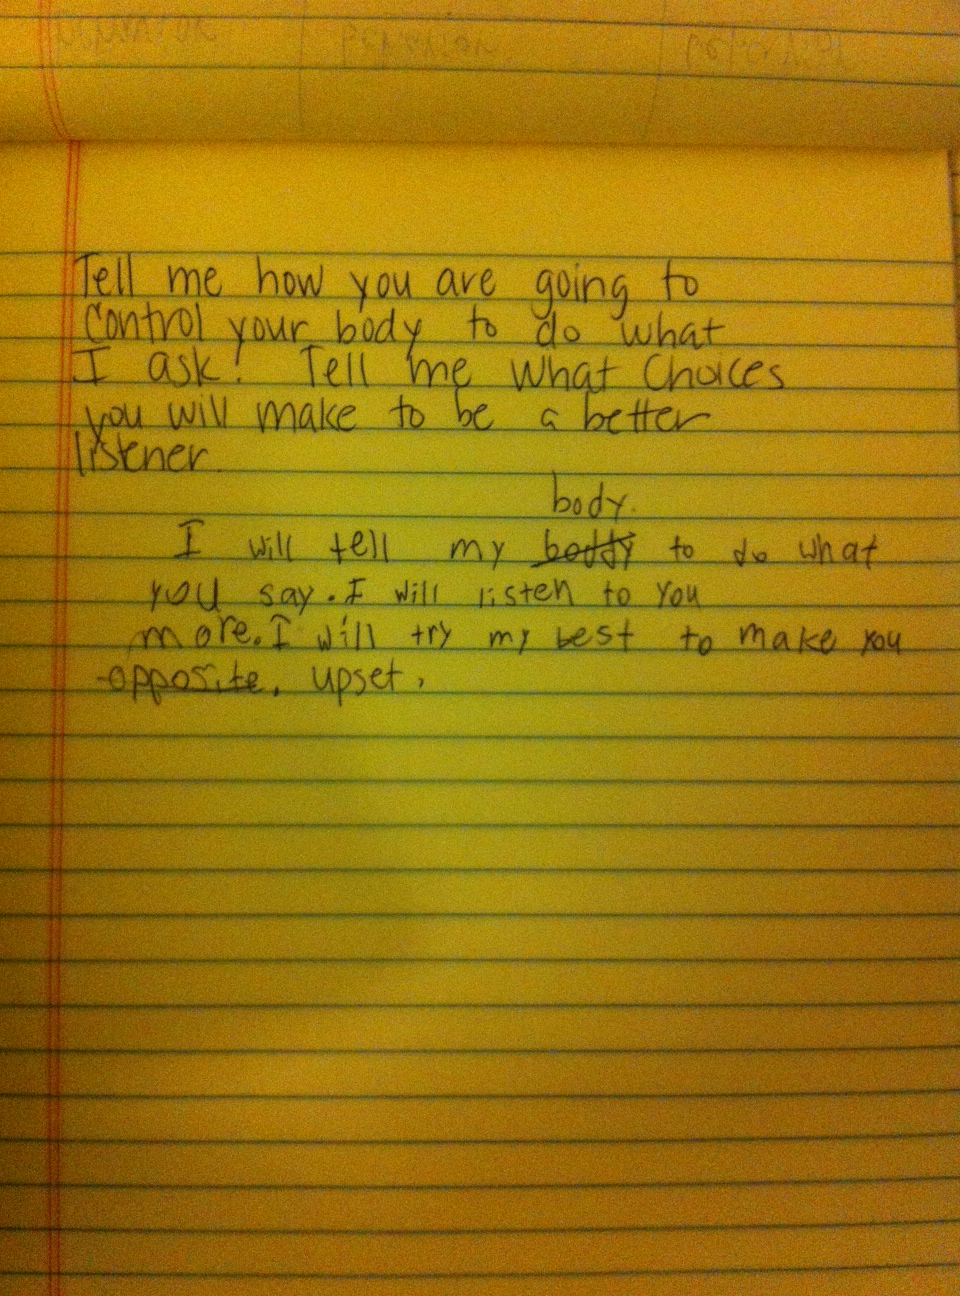 Tell me how you are going to
control your body to do what
I ask! Tell me what choices
you will make to be a better
listener.
body.
I will tell my boddy to do what
you say. I will listen to you
more. I will try my best to make you
opposite. upset.